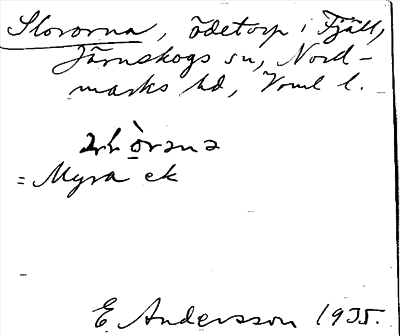 Slororna, ödetorp i Fjäll,
Järnskogs sn, Nord-
marks hd, Vrml l.
= Myra ek
E. Andersson 1935.